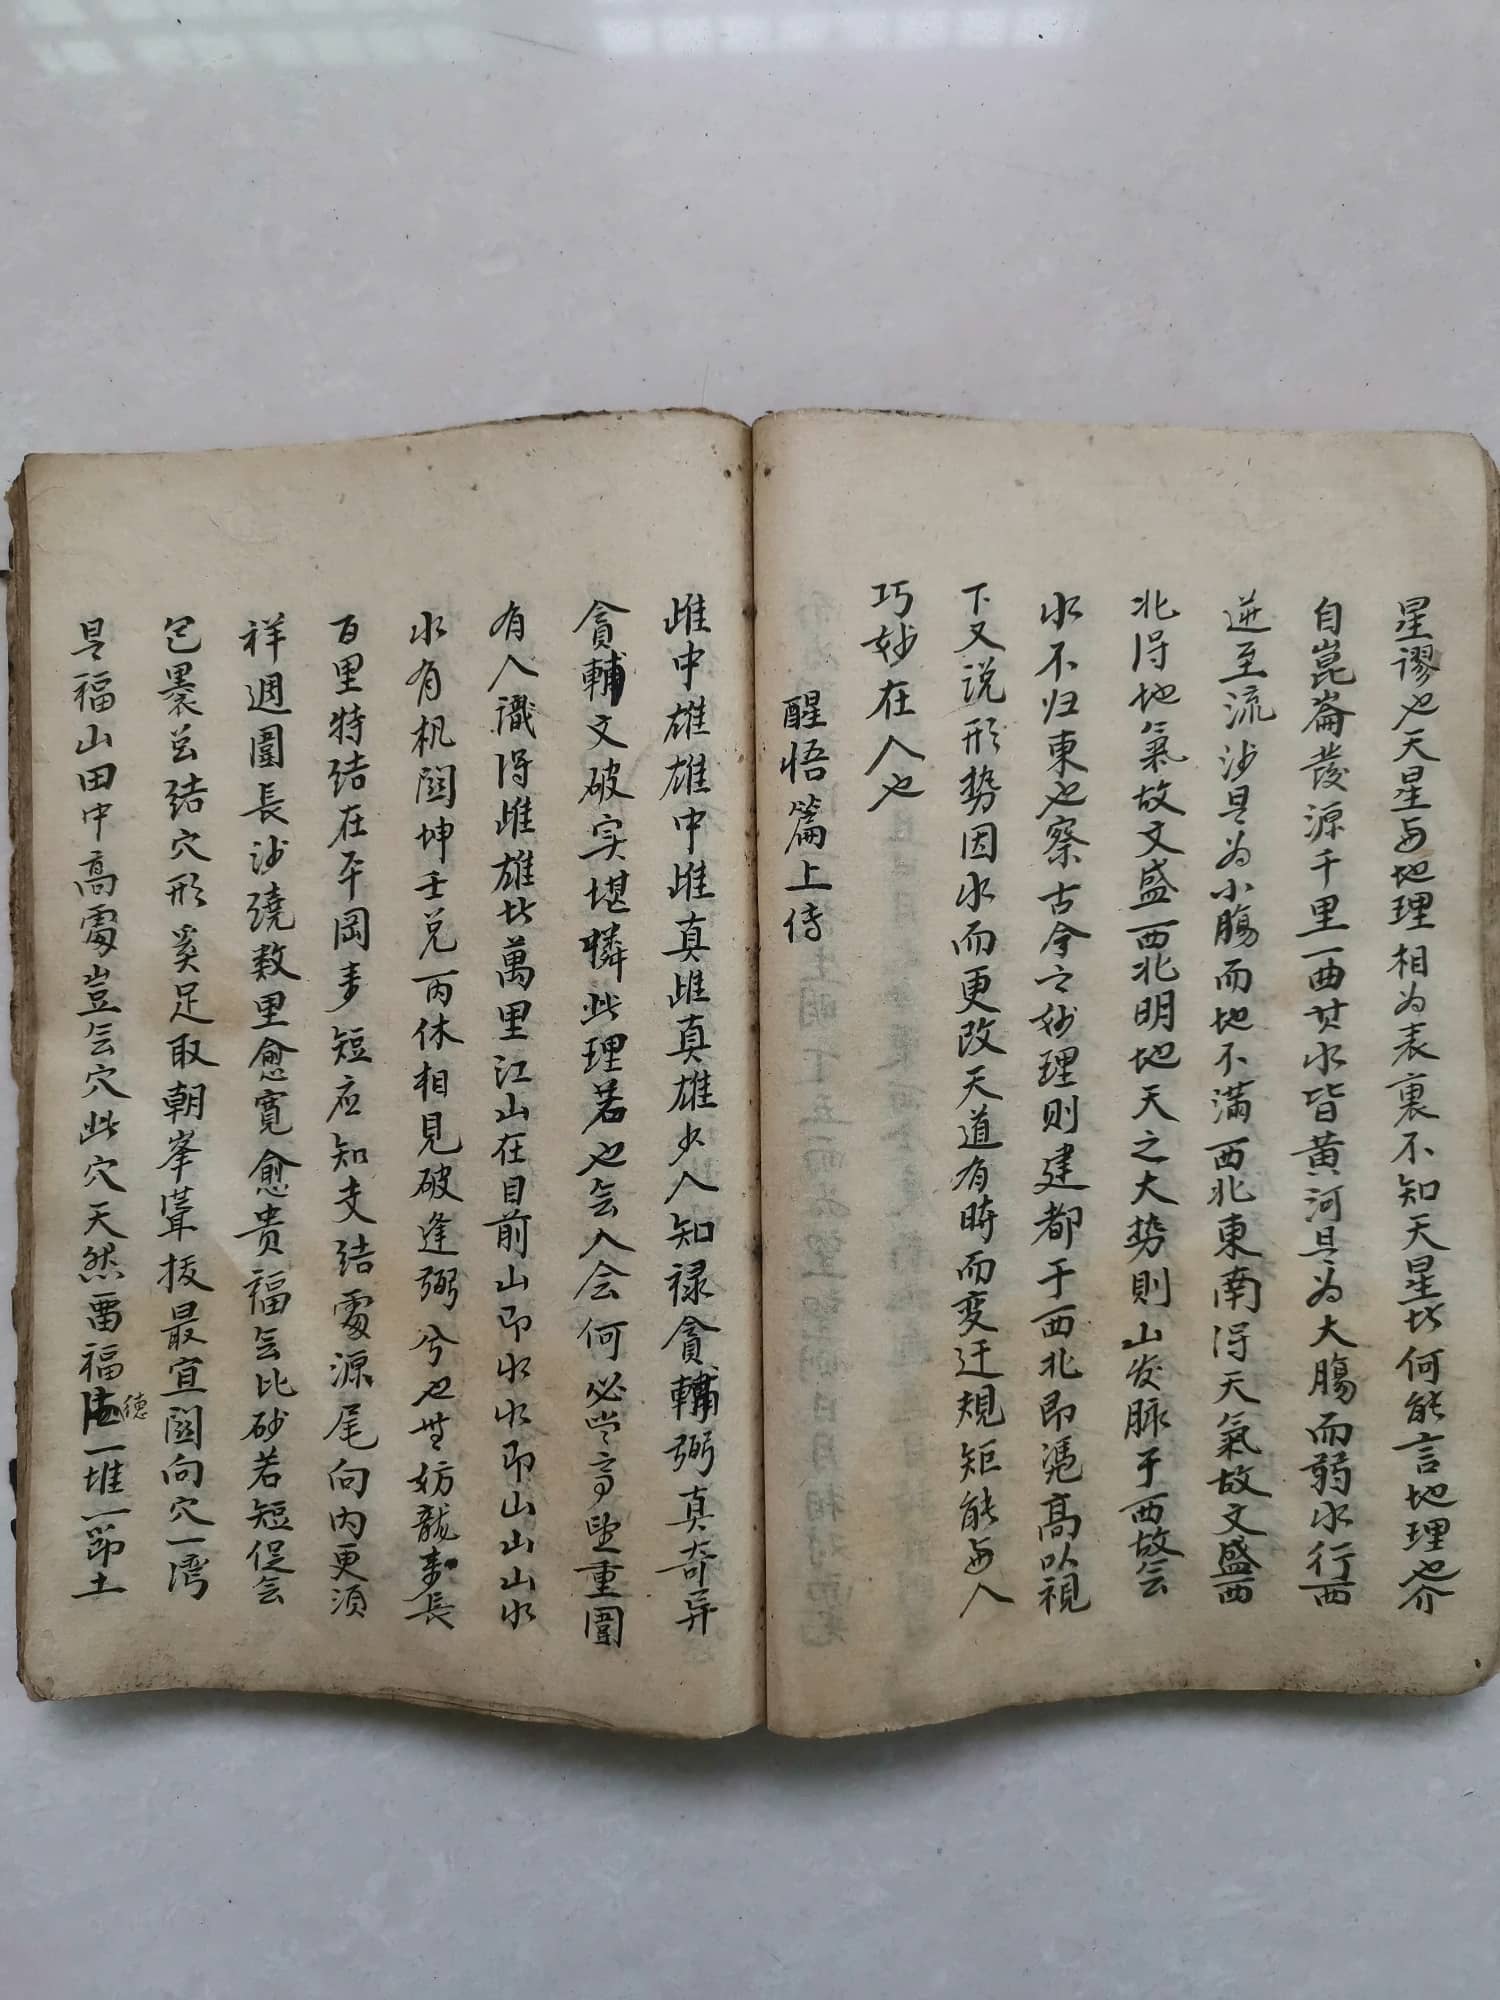 星謬也天星与地理相为表裏不知天星此何能言地理也夼
自崑崙發源千里一曲其水皆黄河是为大腸而弱水行西
迸至流沙是为小腸而地不满西北東南得天氣故文盛西
北得地氣故文盛西北明地天之大势則山发脉于西故会
水不归東也察古今之妙理则建都于西北即凴高以視
下又说形势因水而更改天道有時而変迁規矩能与人
巧妙在人也
醒悟篇上传
雌中雄雄中雌真雌真雄少人知禄貪輔弼真奇异
貪輔文破实堪憐些理若也会入会何必嘗高望重圍
有人識得雌雄此萬里江山在目前山即水水即山山山水
水有机関坤壬兑丙休相見破逢弼兮也無妨龍来長
百里特结在平岡来短应知支结處源尾向内更須
祥週圍長沙繞数里愈寛愈贵福会比砂若短促会
包裹总结穴形奚足取朝峯聳拔最宜関向穴一湾
是福山田中高處豈会穴此穴天然畱福德一堆一節土